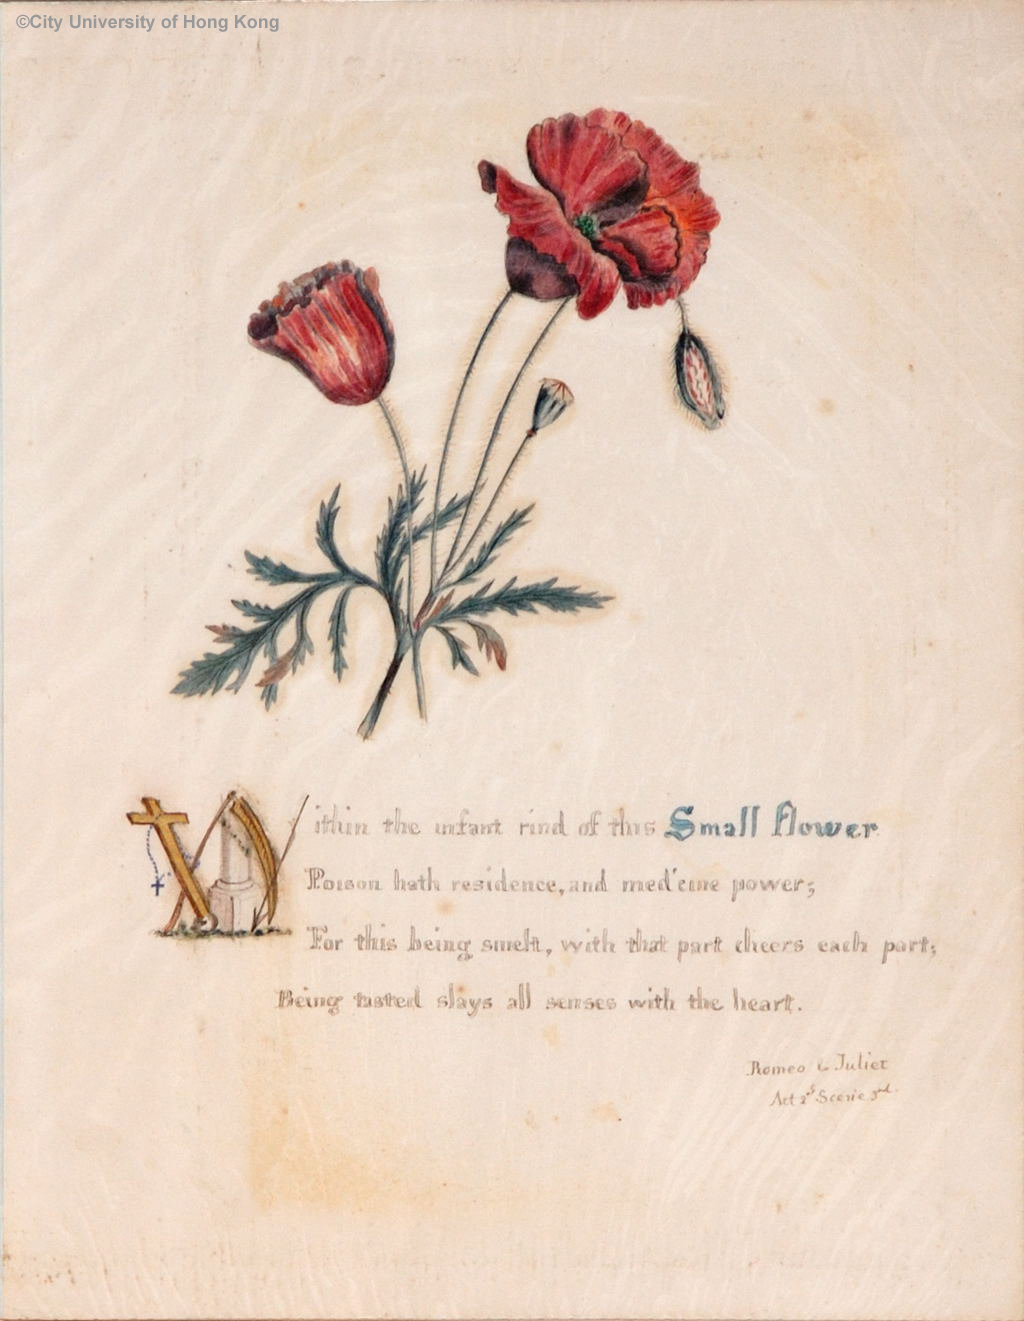 ©City University of Hong Kong
Within the infant rind of this Small flower
Poison hath residence, and med'cine power;
For this being smelt, with that part cheers each part;
Being tasted slays all senses with the heart.
Romeo & Juliet
Act 2d Scene 3rd.